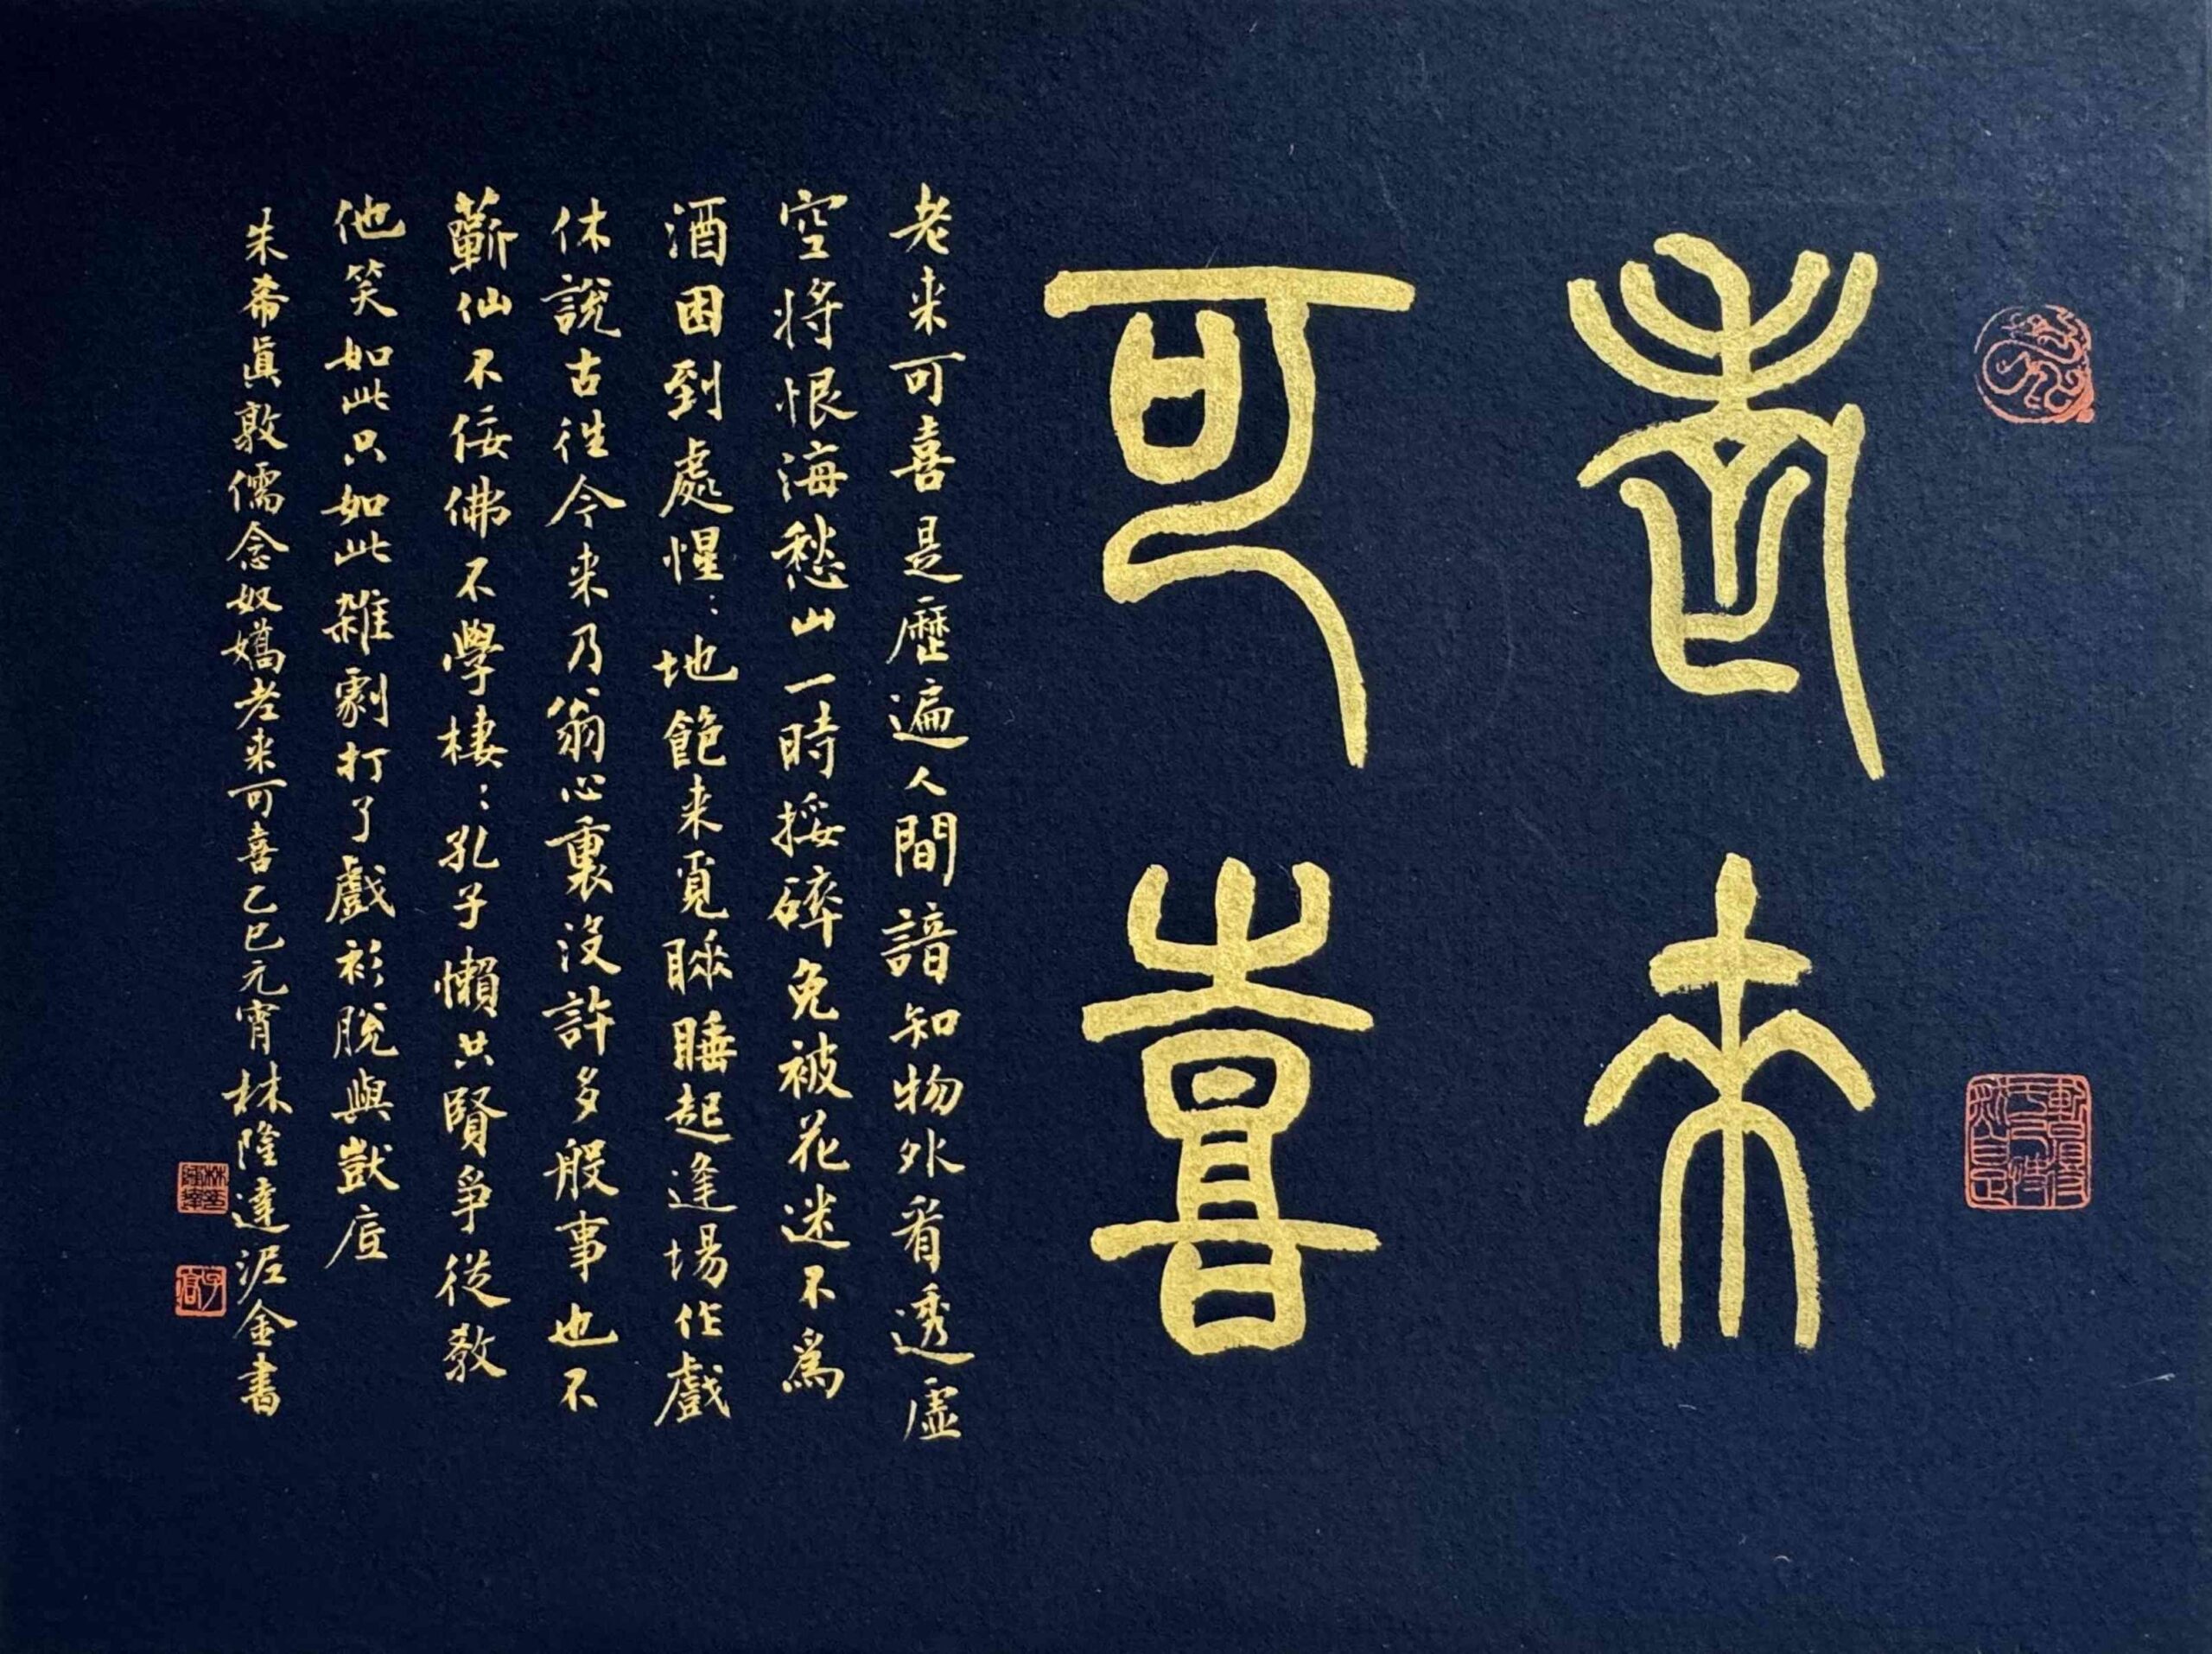 老来
可喜
老来可喜是歷遍人間諳知物外看透虛
空將恨海愁山一時挼碎免被花迷不爲
酒困到處惺：地飽来覓睡睡起逢場作戲
休說古往今来乃翁心裏沒許多般事也不
蘄仙不佞佛不學棲：孔子懶共賢爭從教
他笑如此只如此雜劇打了戲衫脫與獃底
朱希眞敦儒念奴嬌老来可喜乙巳元宵林隆達泥金書
林隆達
子高